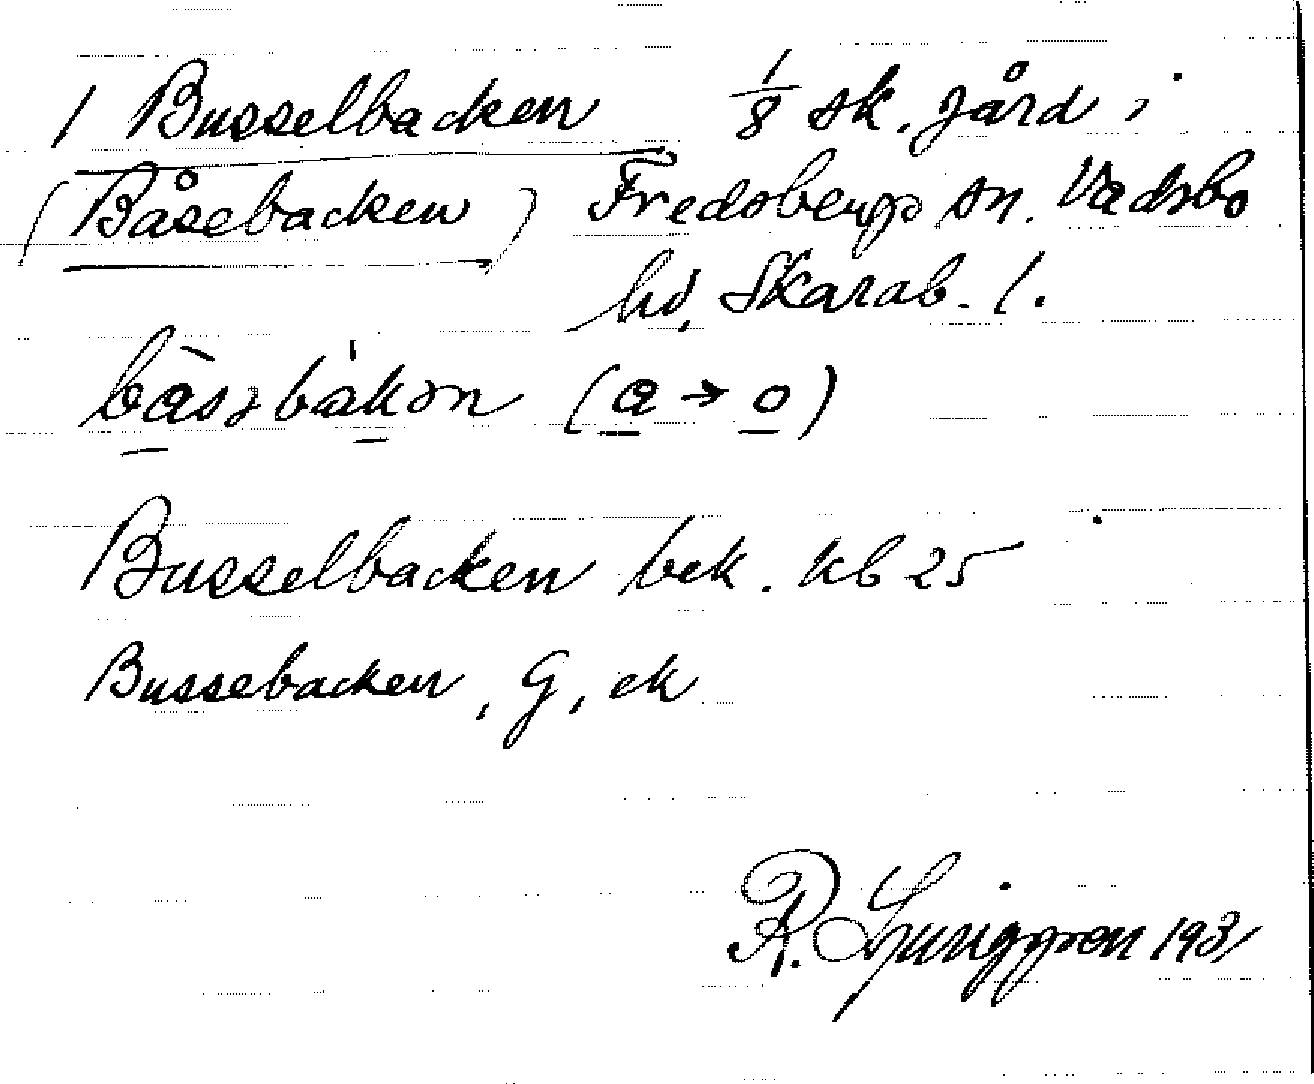 1 Busselbacken 1/8 sk. jård i
(Båsebacken) Fredsbergs sn. Vadsbo
hd, Skarab. l.
(a → o)
Busselbacken bek. kb 25
Bussebacken, G, ek
R. Ljunggren 1931